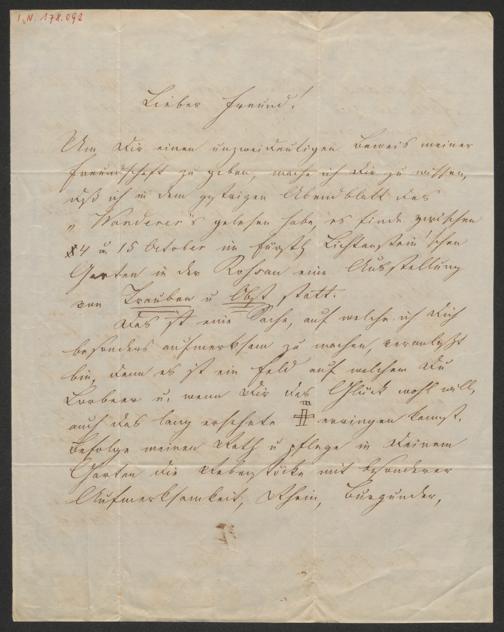 I.N. 178.092
Lieber Freund!
Um Dir einen unzweideutigen Beweis meiner
Freundschaft zu geben, mache ich Dir zu wissen,
daß ich in dem gestrigen Abendblatt des
„Wanderer's gelesen habe, es finde zwischen
4 u 15 October im fürstl. Lichtenstein'schen
Garten in der Rossau eine Ausstellung
von Trauben u Obst statt.
Das ist eine Sache, auf welche ich Dich
besonders aufmerksam zu machen, veranlaßt
bin, denn es ist ein Feld auf welchem Du
Lorbeer u, wenn Dir das Glück wohl will,
auch das lang ersehnte erringen kannst.
Befolge meinen Rath u pflege in Deinem
Garten die Rebenstöcke mit besonderer
Aufmerksamkeit, Rhein, Burgunder,